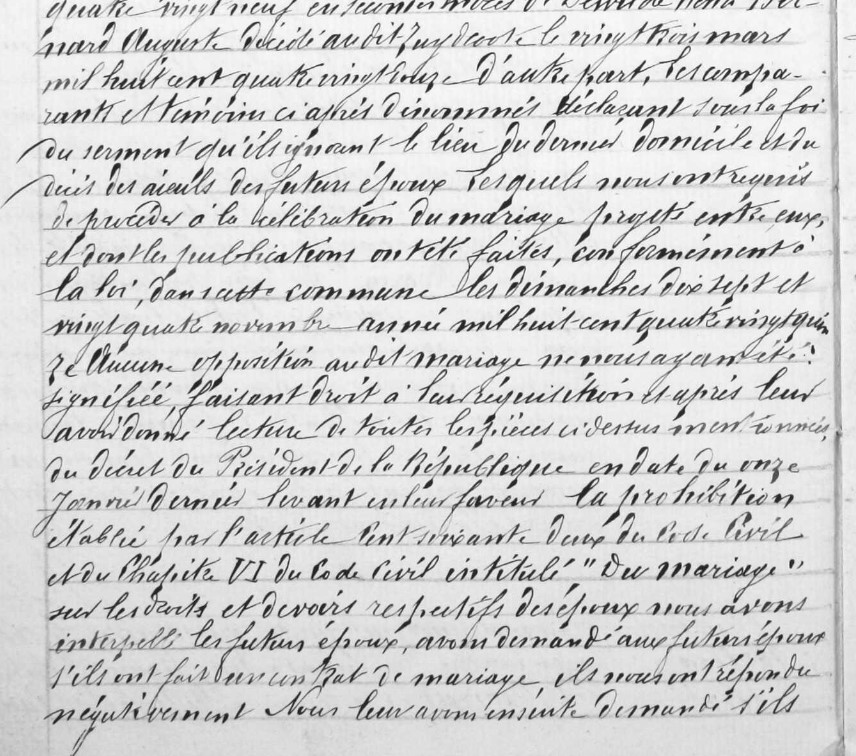 quatre vingt neuf en secondes noces de Dewilde Henri Ber-
nard Auguste décédé audit Zuydcoote le vingt trois mars
mil huit cent quatre vingt douze d'autre part, Les compa-
rants et témoins ci après dénommés déclarant sous la foi
du serment qu'ils ignorent le lieu du dernier domicile et du
décès des aïeuls des futurs époux Lesquels nous ont requis
de procéder à la célébration du mariage projeté entre eux,
et dont les publications ont été faites, conformément à
la loi, dans cette commune les dimanches dix sept et
vingt quatre novembre année mil huit cent quatre vingt quin
ze Aucune opposition audit mariage ne nous ayant été
signifiée, faisant droit à leur réquisition et après leur
avoir donné lecture de toutes les pièces ci dessus mentionnées,
du décret du Président de la République en date du onze
Janvier dernier levant en leur faveur la prohibition
établie par l'article Cent soixante deux du Code Civil
et du Chapitre VI du Code Civil intitulé "Du mariage"
sur les droits et devoirs respectifs des époux nous avons
interpellé les futurs époux, avons demandé aux futurs époux
s'ils ont fait un contrat de mariage ils nous ont répondu
négativement Nous leur avons ensuite demandé s'ils